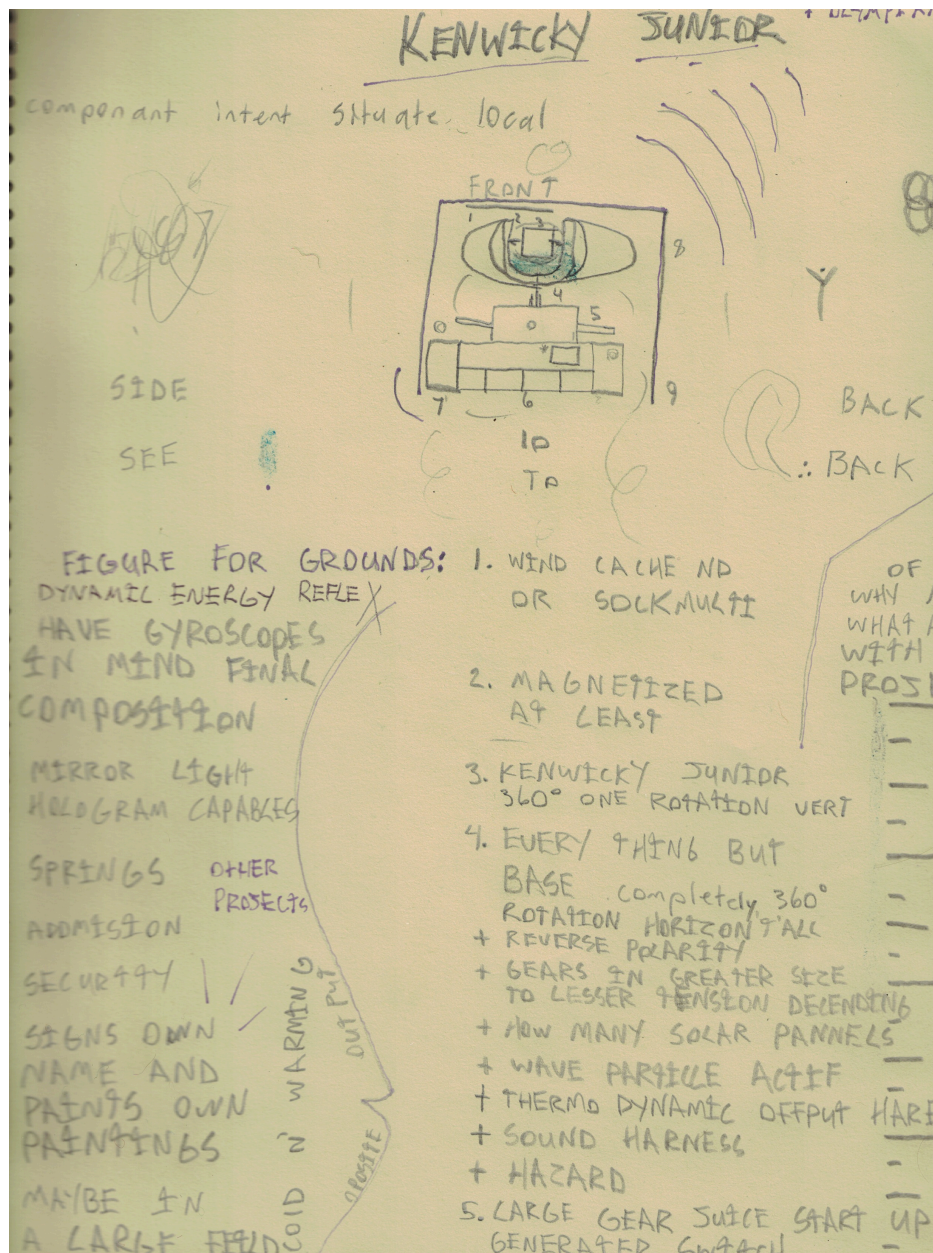 KENWICKY JUNIOR
componant intent situate local
FRONT
1 2 3
4
5
6
7
8
9
Y
SIDE
SEE
BACK
∴ BACK
FIGURE FOR GROUNDS:
DYNAMIC ENERGY REFLEX
HAVE GYROSCOPES
IN MIND FINAL
COMPOSITION
MIRROR LIGHT
HOLOGRAM CAPABLES
SPRINGS
OTHER
PROJECTS
ADDMISION
SECURITY
SIGNS OWN
NAME AND
PAINTS OWN
PAINTINGS
MAYBE IN
A LARGE FIELD
COLD N' WARMING
OUT PUT
OPOSITE
1. WIND CACHE ND
OR SOCKMULTI
2. MAGNETIZED
AT LEAST
3. KENWICKY JUNIOR
360° ONE ROTATION VERT
4. EVERY THING BUT
BASE completely 360°
ROTATION HORIZON'T'ALL
+ REVERSE POLARITY
+ GEARS IN GREATER SIZE
TO LESSER TENSION DECENDING
+ HOW MANY SOLAR PANNELS
+ WAVE PARTICLE ACTIF
+ THERMO DYNAMIC OFFPUT
+ SOUND HARNESS
+ HAZARD
5. LARGE GEAR JUICE START UP
GENERATED SWITCH
OF
WHY
WHAT
WITH